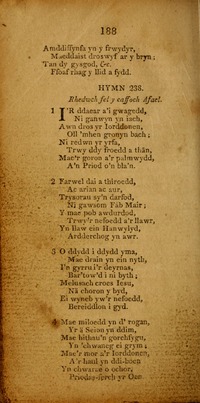 188
Amddiffynfa yn y frwydyr,
Maeddaist droswyf ar y bryn;
Tan dy gysgod, &c.
Ffoaf rhag y llid a fydd.
HYMN 238.
Rhedwch fel y caffoch Afael.
1 I'R ddaear a'i gwagedd,
Ni ganwyn yn iach,
Awn dros yr Iorddonen,
Oll 'mhen gronyn bach;
Ni redwn yr yrfa,
Trwy ddy froedd a thân,
Mae'r goron a'r palmwydd,
A'n Priod o'n bla'n.
2 Farwel dai a thiroedd,
Ac arian ac aur,
Trysorau sy'n darfod,
Ni gawsom Fab Mair;
Y mae pob awdurdod,
Trwy'r nefoedd a'r llawr,
Yn llaw ein Hanwylyd,
Ardderchog yn awr.
3 O ddydd i ddydd yma,
Mae drain yn ein nyth,
I'n gyrru i'r deyrnas,
Bar'tow'd i ni byth;
Melusach croes Iesu,
Nâ choron y byd,
Ei wyneb yw'r nefoedd,
Bereiddlon i gyd.
4 Mae miloedd yn d' rogan,
Yr â Seion yn ddim,
Mae hithau'n gorchfygu,
Yn 'chwaneg ei grym;
Mae'r mor a'r Iorddonen,
A'r haul yn ddi-boen
Yn chwarae o ochor,